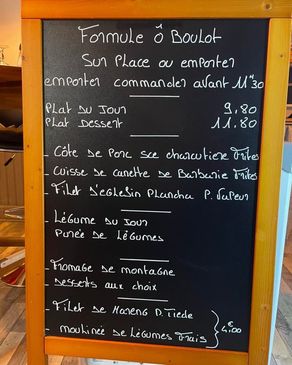 Formule Ô Boulot
Sur Place ou emporter
emporter commander avant 11h30
Plat du Jour 9,80
Plat Dessert 11.80
- Côte de Porc sce charcutiere Frites
- Cuisse de canette de Barbarie Frites
- Filet D'eglefin Plancha P. Vapeur
- Légume du Jour
Purée de Légumes
- Fromage de montagne
- Desserts aux choix
- Filet de Hareng P. Tiede
- moulinée de Légumes Frais } 4€00